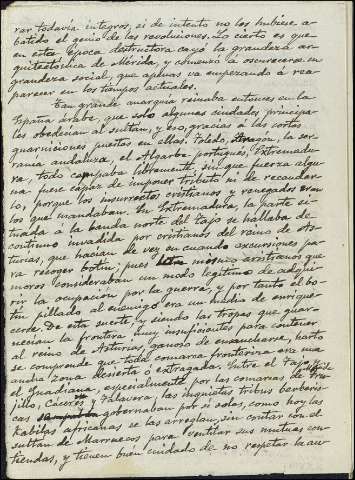 rar todavía íntegros, si de intento no los hubiese a-
batido el genio de las revoluciones. Lo cierto es que
en esta época destructora cayó la grandeza ar-
quitectónica de Mérida, y comenzó a oscurecerse su
grandeza social, que apenas va empezando á rea-
parecer en los tiempos actuales.
Tan grande anarquía reinaba entonces en la
España árabe, que solo algunas ciudades principa-
les obedecían al sultán, y eso, gracias á las cortas
guarniciones puestas en ellas. Toledo, Aragón, la se-
rranía andaluza, el Algarbe portugués, Extremadu-
ra, todo campaba libremente, sin que fuerza algu-
na fuese capaz de imponer tributo ni de recaudar-
lo, porque los insurrectos cristianos y renegados eran
los que mandaban. En Extremadura, la parte si-
tuada á la banda norte del Tajo se hallaba de
continuo invadida por cristianos del reino de As-
turias, que hacían de vez en cuando excursiones pa-
ra recoger botín; pues lo mismo cristianos que
moros consideraban un modo legítimo de adqui-
rir la ocupación por la guerra, y por tanto el bo-
tín pillado al enemigo era un medio de enrique-
cerse. De esta suerte, y siendo las tropas que guar-
necían la frontera muy insuficientes para contener
al reino de Asturias, ganoso de ensancharse, harto
se comprende que toda comarca fronteriza era una
zona desierta ó extragada. Entre el Tajo y
el Guadiana, especialmente por las comarcas de Truj-
illo, Cáceres y Talavera, las inquietas tribus berberis-
cas gobernaban por sí solas, como hoy las
kabilas africanas se las arreglan, sin contar con el
sultán de Marruecos para ventilar sus mutuas con-
tiendas, y tienen buen cuidado de no respetar la au-